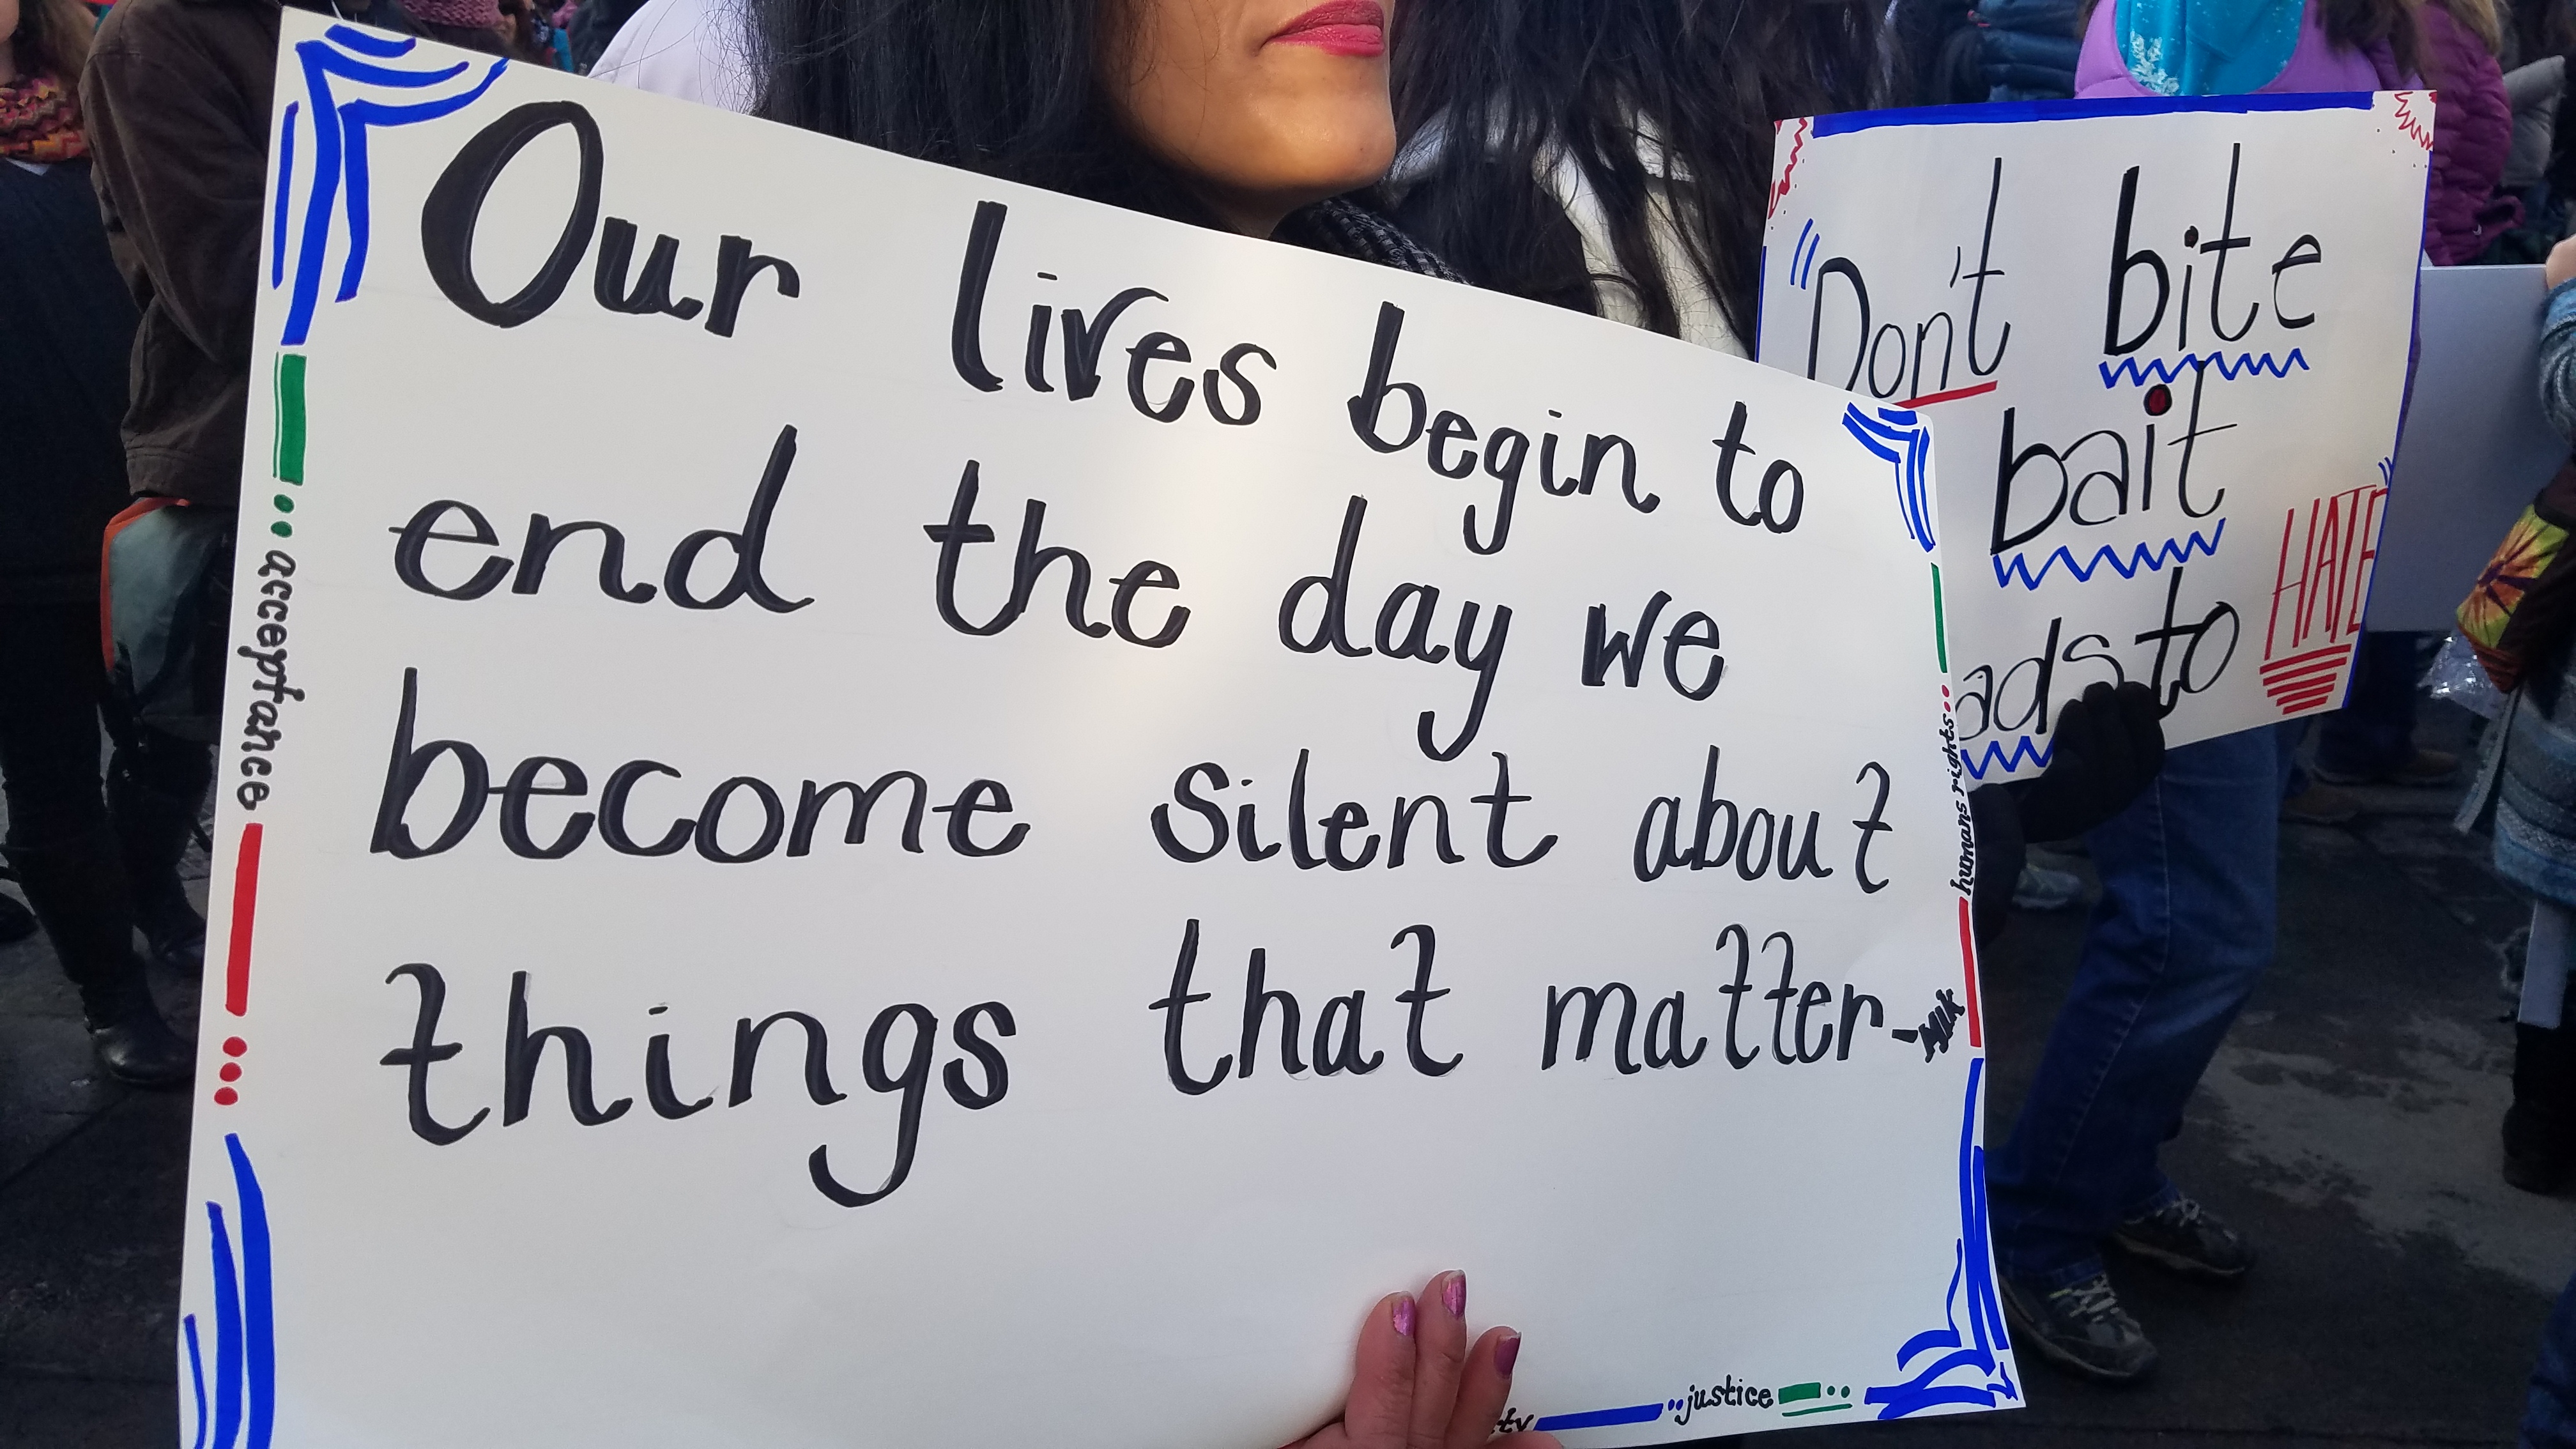 Our lives begin to
end the day we
become silent about
things that matter - MLK
acceptance
humans rights
justice
"Don't bite
bait
to HATE"